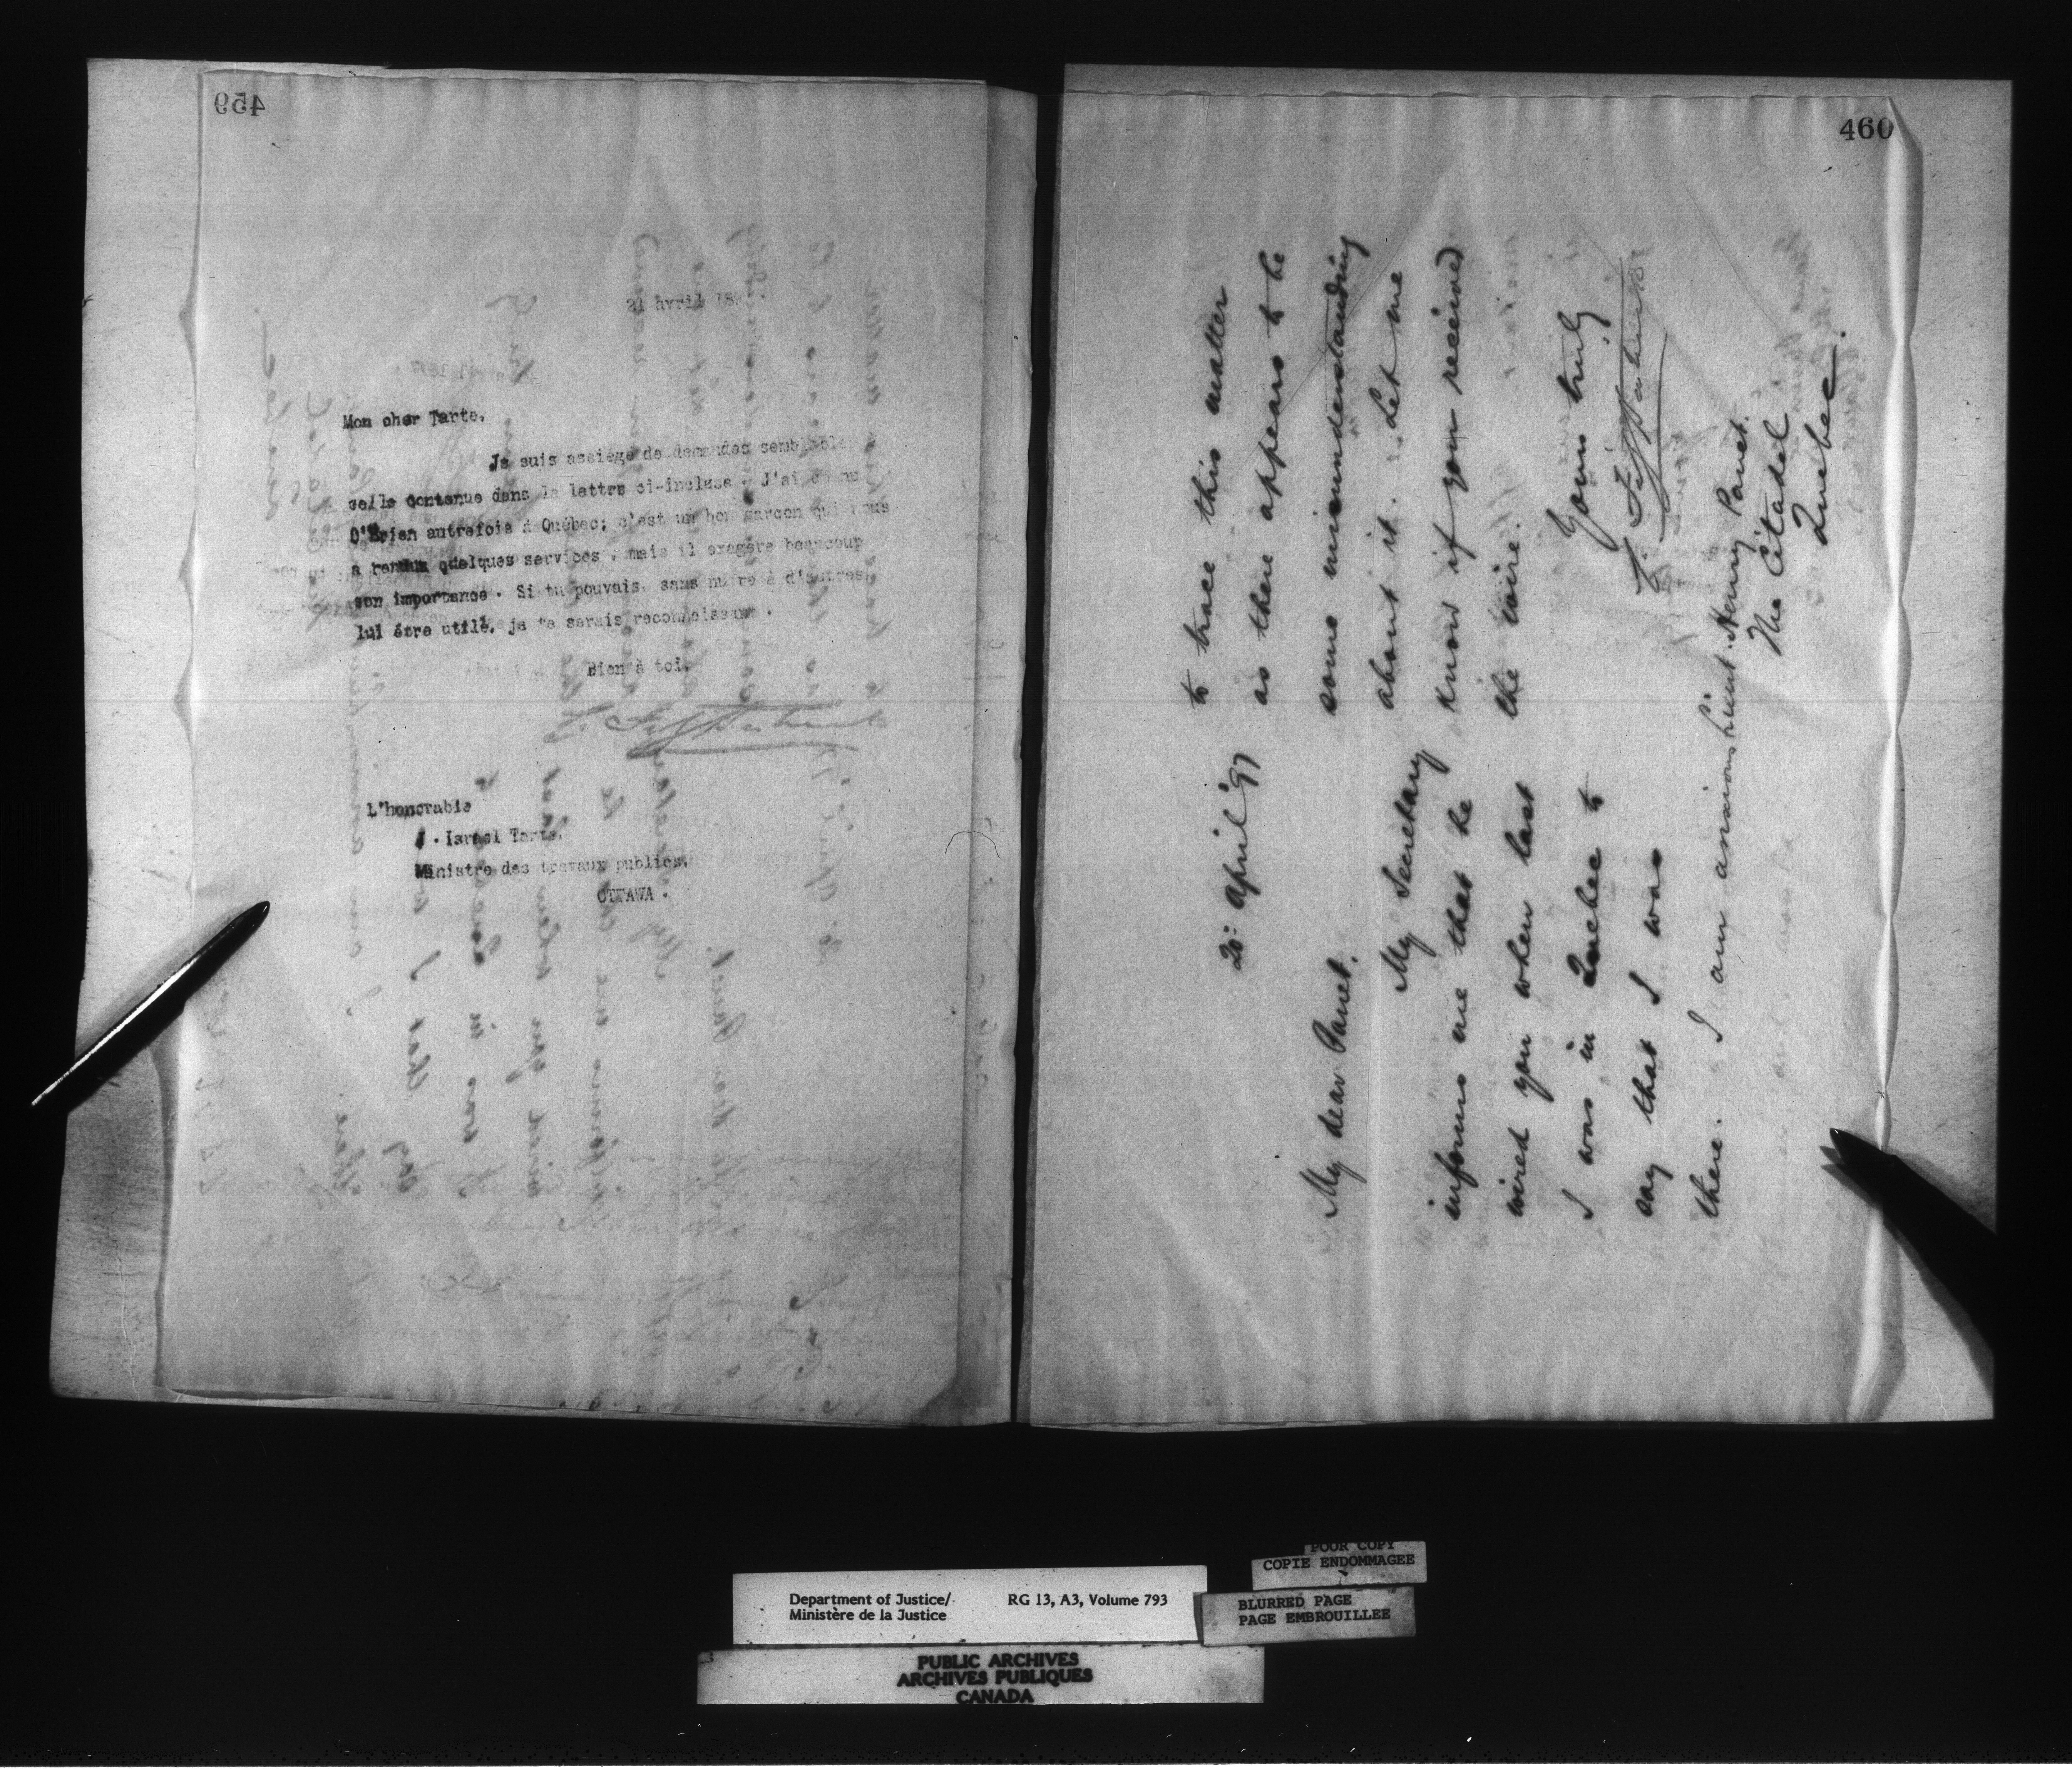 459
21 avril 18
Mon cher Tarte,
Je suis assiégé de demandes semblable
celle contenue dans la lettre ci-incluse. J'ai connu
O'Brien autrefois à Québec; c'est un bon garcon qui nous
a rendu quelques services, mais il exagère beaucoup
son importance. Si tu pouvais, sans nuire à d'autres,
lui être utile, je te serais reconnaissant.
Bien à toi,
L'honorable
J. Israel Tarte,
Ministre des travaux publics,
OTTAWA.
460
20: April '97
My dear Panet,
My Secretary
informs me that he
wired you when last
I was in Quebec to
say that I was
there. I am anxious
to trace this matter
as there appears to be
some misunderstanding
about it. Let me
know if you received
the wire.
Yours truly
Lieut. Henry Panet.
The Citadel
Quebec.
POOR COPY
COPIE ENDOMMAGEE
Department of Justice/
Ministère de la Justice
RG 13, A3, Volume 793
BLURRED PAGE
PAGE EMBROUILLEE
PUBLIC ARCHIVES
ARCHIVES PUBLIQUES
CANADA